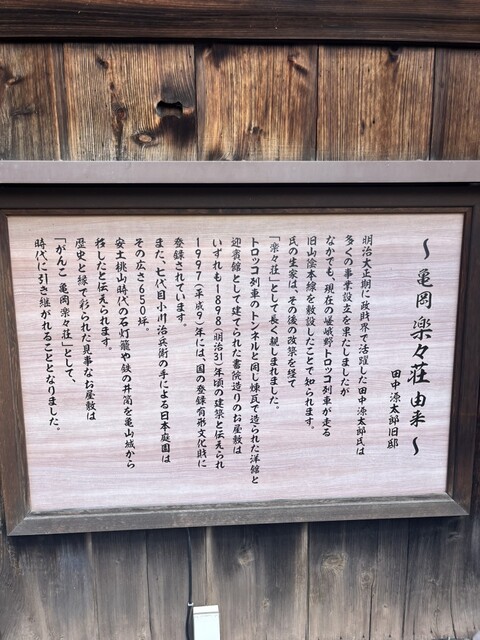 ～亀岡 楽々荘 由来～
田中源太郎旧邸
明治大正期に政財界で活躍した田中源太郎氏は
多くの事業設立を果たしましたが
なかでも、現在の嵯峨野トロッコ列車が走る
旧山陰本線を敷設したことで知られます。
氏の生家は、その後の改築を経て
「楽々荘」として長く親しまれました。
トロッコ列車のトンネルと同じ煉瓦で造られた洋館と
迎賓館として建てられた書院造りのお屋敷は
いずれも1898(明治31)年頃の建築と伝えられ
1997(平成9)年には、国の登録有形文化財に
登録されています。
また、七代目小川治兵衛の手による日本庭園は
その広さ650坪。
安土桃山時代の石灯籠や鉄の井筒を亀山城から
移したと伝えられます。
歴史と緑で彩られた見事なお屋敷は
「がんこ 亀岡楽々荘」として、
時代に引き継がれることとなりました。